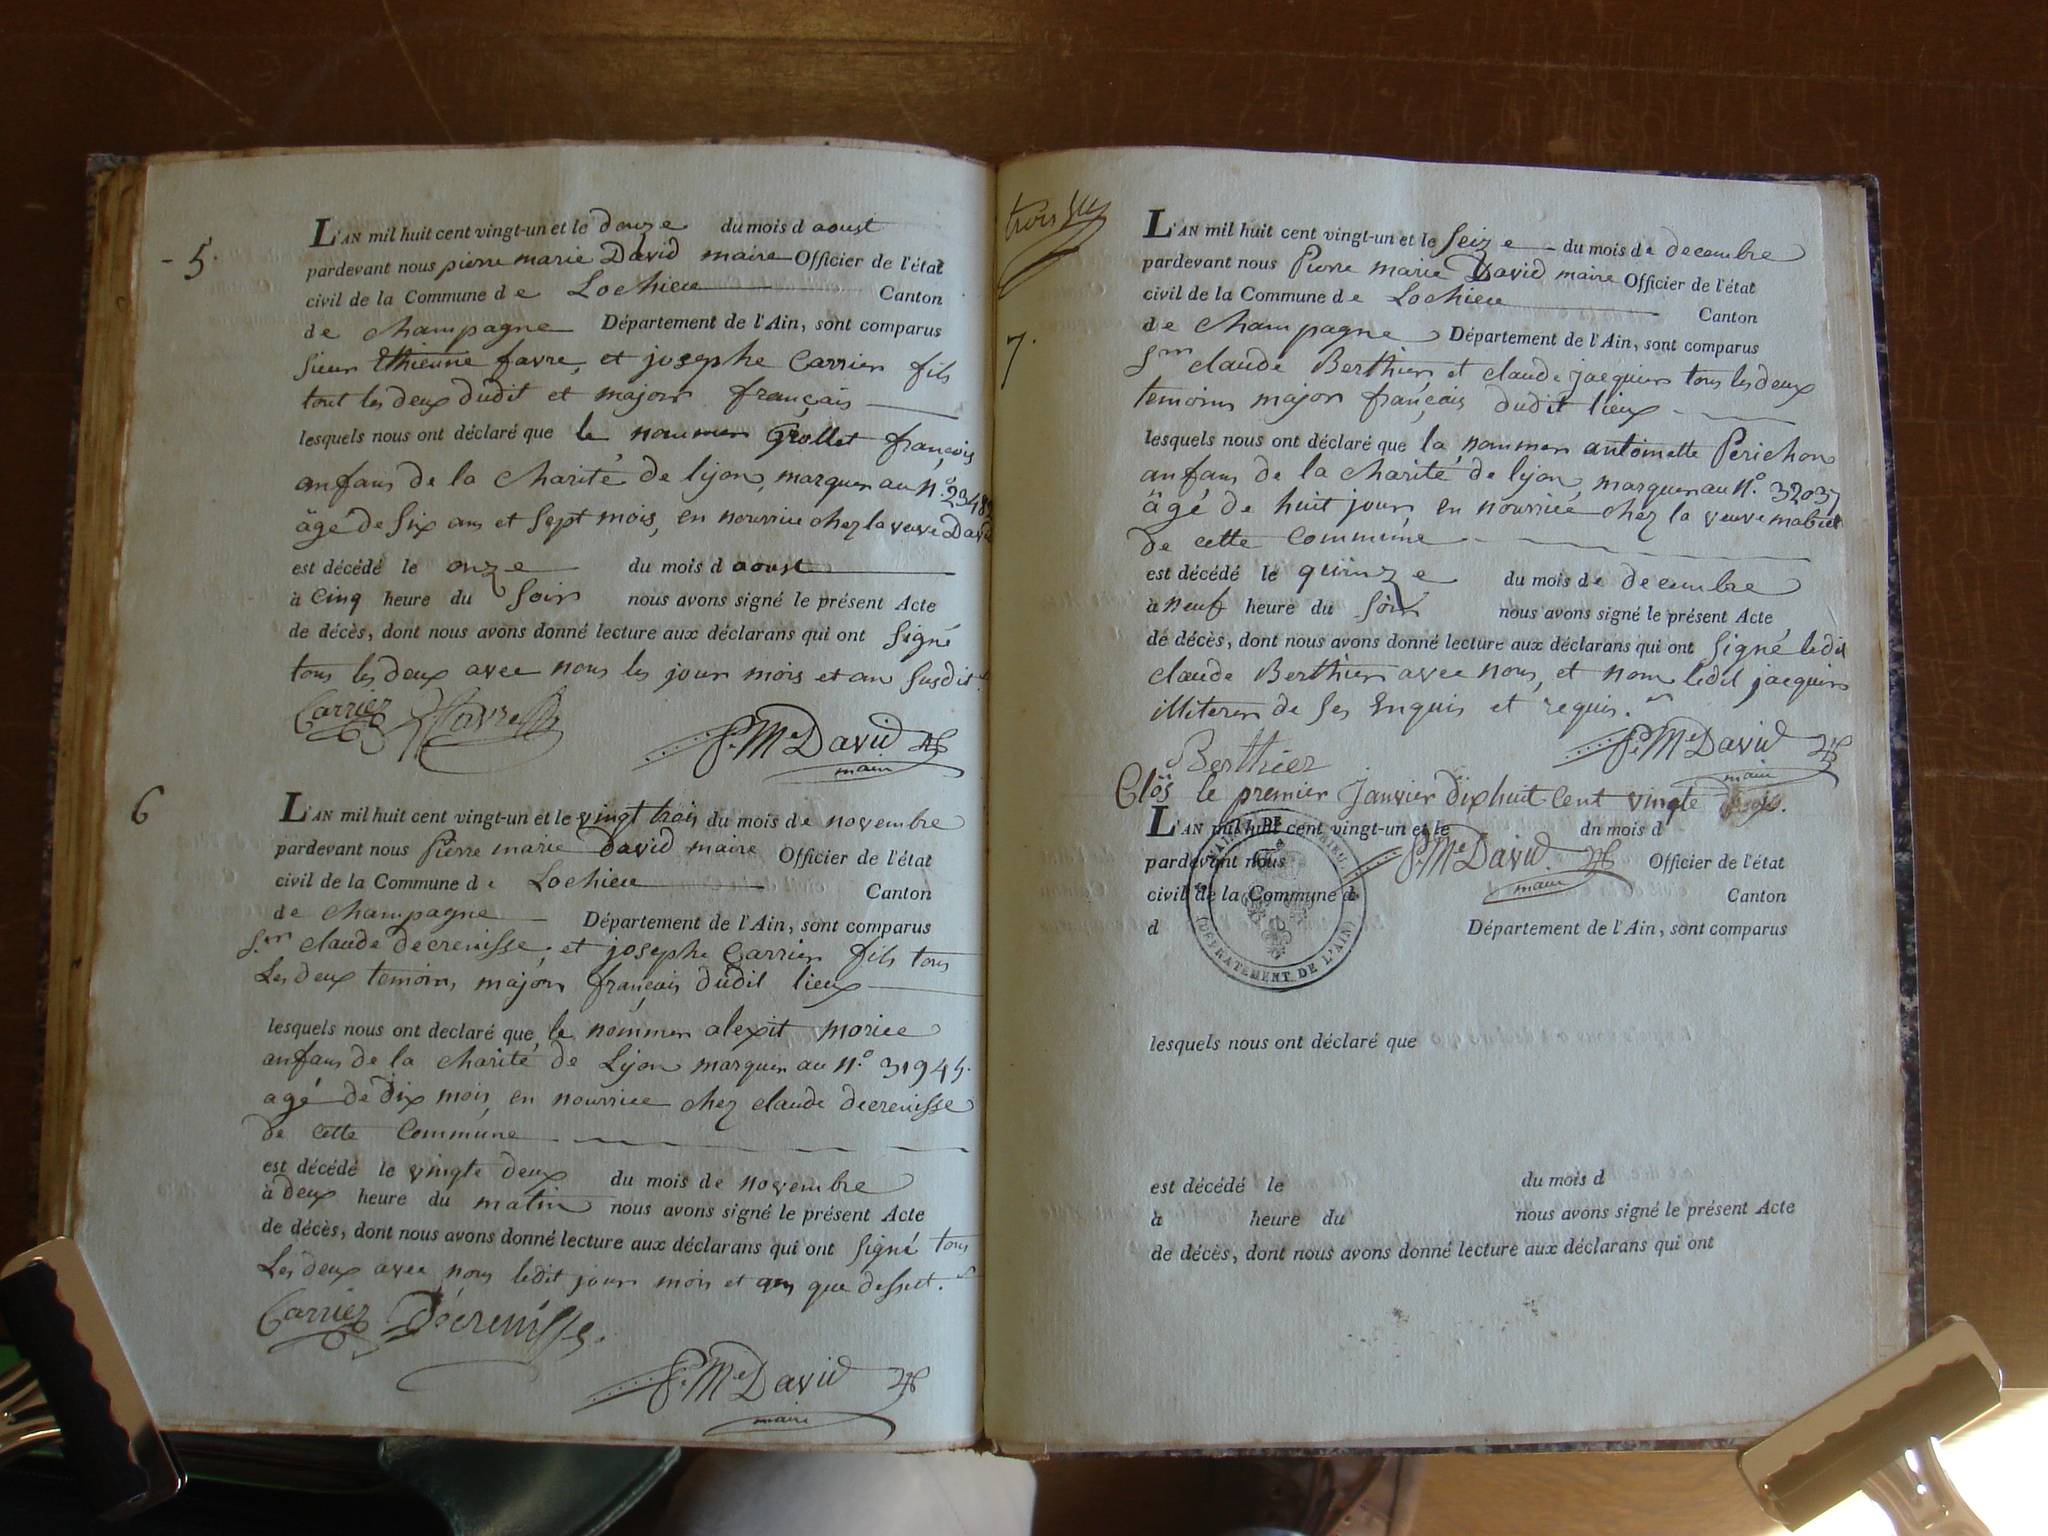 - 5.
L'AN mil huit cent vingt-un et le douze du mois d aoust
pardevant nous pierre marie David maire Officier de l'état
civil de la Commune de Lochieu Canton
de champagne Département de l'Ain, sont comparus
sieur Ethienne favre, et josephe Carrier fils
tout les deux dudit et major français
lesquels nous ont déclaré que le nommer Grollet françois
anfans de la charité de lyon, marquer au N.º 2348
âgé de six ans et sept mois, en nourrice chez la veuve David
est décédé le onze du mois d aoust
à Cinq heure du soir nous avons signé le présent Acte
de décès, dont nous avons donné lecture aux déclarans qui ont signé
tous les deux avec nous les jour mois et an susdit
Carrier favre
P. Me David
maire
6
L'AN mil huit cent vingt-un et le vingt trois du mois de novembre
pardevant nous Pierre marie David maire Officier de l'état
civil de la Commune de Lochieu Canton
de champagne Département de l'Ain, sont comparus
Sr claude decrenisse, et josephe Carrier fils tous
Les deux temoins, major français dudit lieux
lesquels nous ont declaré que le nommer alexit morice
anfans de la charité de Lyon marquer au N.º 31945.
agé de dix mois, en nourrice chez claude decrenisse
de cette Commune
est décédé le vingte deux du mois de novembre
à deux heure du matin nous avons signé le présent Acte
de décès, dont nous avons donné lecture aux déclarans qui ont signé tous
Les deux avec nous ledit jour mois et an que dessut.
Carrier Decrenisse
P. Me David
maire
trois
7.
L'AN mil huit cent vingt-un et le seize du mois de decembre
pardevant nous Pierre marie David maire Officier de l'état
civil de la Commune de Lochieu Canton
de champagne Département de l'Ain, sont comparus
Sr claude Berthier, et claude jacquier tous les deux
temoins major français dudit lieux
lesquels nous ont déclaré que la nommer antoinette Perichon
anfans de la charité de lyon, marquer au N.º 32037
âgé de huit jour, en nourrice chez la veuve
de cette Commune
est décédé le quinze du mois de decembre
à neuf heure du soir nous avons signé le présent Acte
de décès, dont nous avons donné lecture aux déclarans qui ont signé ledit
claude Berthier avec nous, et nom ledit jacquier
illiterer de ses Enquis et requis.
Berthier P. Me David
maire
Clôs le premier Janvier dixhuit Cent vingte
L'AN mil huit cent vingt-un et le dn mois d
pardevant nous P. Me David Officier de l'état
maire
civil de la Commune d Canton
d Département de l'Ain, sont comparus
(DEPRATEMENT DE L'AIN)
lesquels nous ont déclaré que
est décédé le du mois d
à heure du nous avons signé le présent Acte
de décès, dont nous avons donné lecture aux déclarans qui ont